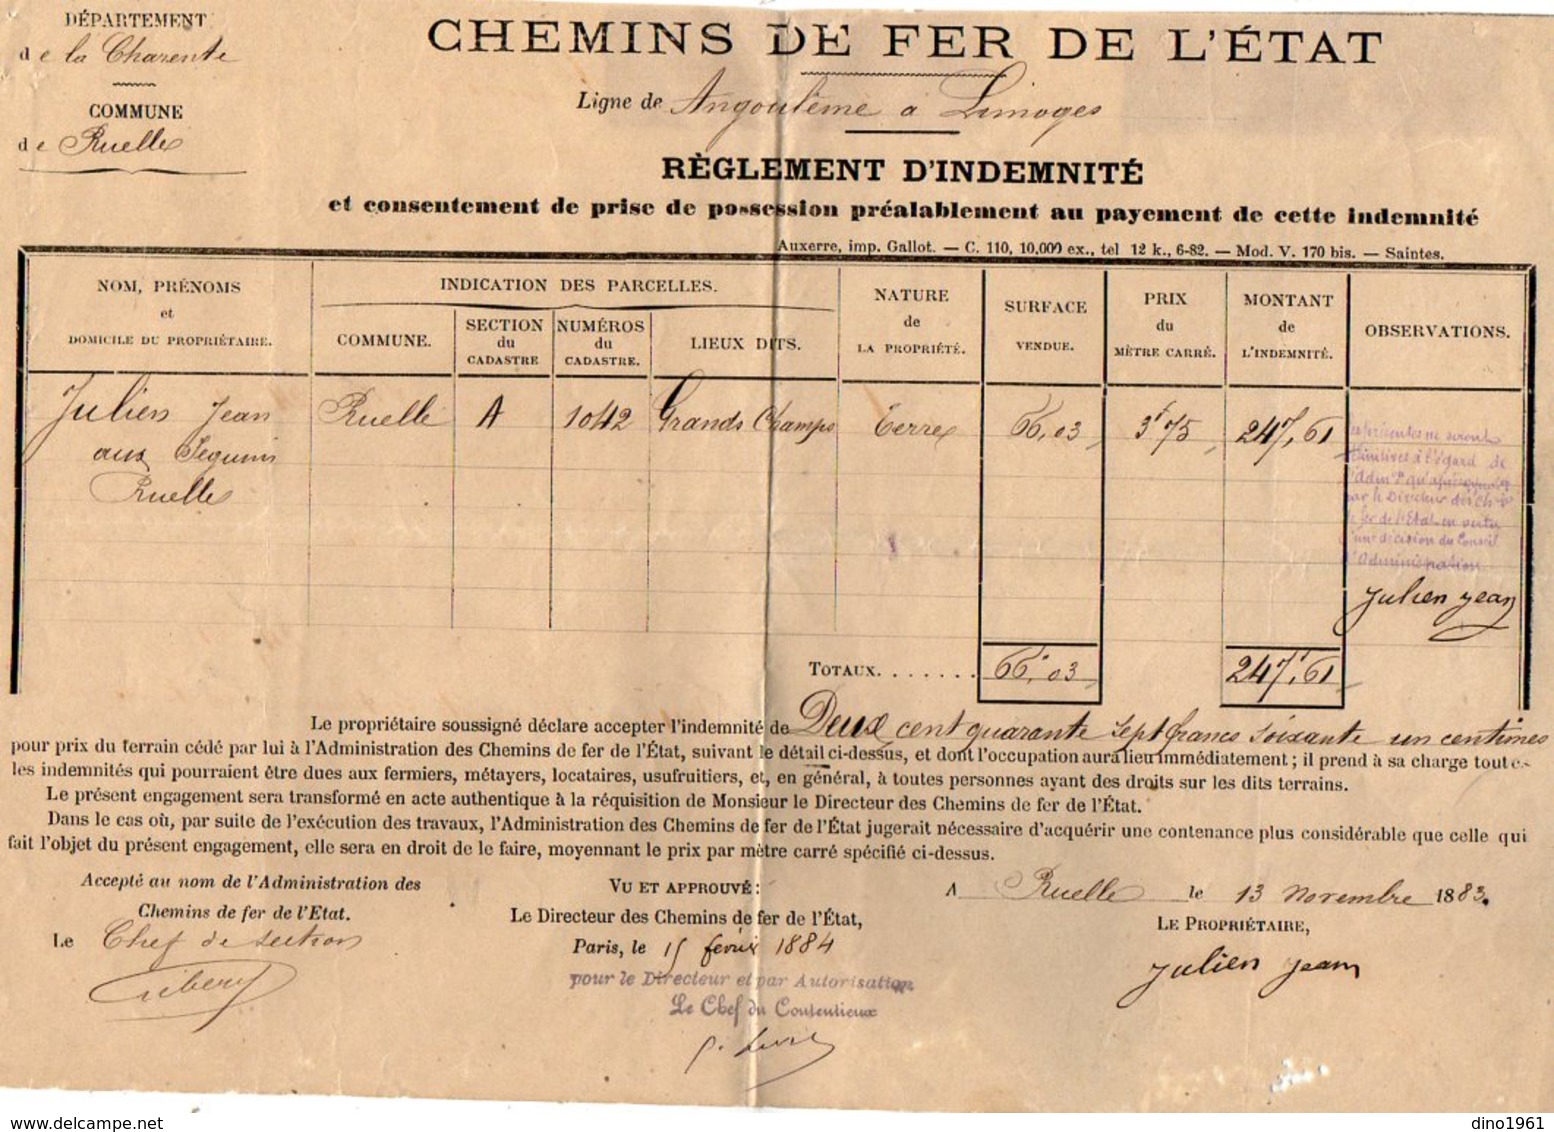 DÉPARTEMENT
de la Charente
COMMUNE
de Ruelle
CHEMINS DE FER DE L'ÉTAT
Ligne de Angoulême à Limoges
RÈGLEMENT D'INDEMNITÉ
et consentement de prise de possession préalablement au payement de cette indemnité
Auxerre, imp. Gallot. — C. 110, 10,000 ex., tel 12 k., 6-82. — Mod. V. 170 bis. — Saintes.
NOM, PRÉNOMS
et
DOMICILE DU PROPRIÉTAIRE.
INDICATION DES PARCELLES.
COMMUNE.
SECTION
du
CADASTRE
NUMÉROS
du
CADASTRE.
LIEUX DITS.
NATURE
de
LA PROPRIÉTÉ.
SURFACE
VENDUE.
PRIX
du
MÈTRE CARRÉ.
MONTANT
de
L'INDEMNITÉ.
OBSERVATIONS.
Julien Jean
aux Seguins
Ruelle
Ruelle
A
1042
Grands Champs
Terre
66,03
3f75
247,61
présentes ne seront
définitives à l'égard de
l'adm on qu'après
par le Directeur des Ch
de fer de l'Etat en vertu
d'une décision du Conseil
d'Administration
Julien jean
TOTAUX. . . . . . .
66,03
247f,61
Le propriétaire soussigné déclare accepter l'indemnité de Deux cent quarante sept francs soixante un centimes
pour prix du terrain cédé par lui à l'Administration des Chemins de fer de l'État, suivant le détail ci-dessus, et dont l'occupation aura lieu immédiatement ; il prend à sa charge toutes
les indemnités qui pourraient être dues aux fermiers, métayers, locataires, usufruitiers, et, en général, à toutes personnes ayant des droits sur les dits terrains.
Le présent engagement sera transformé en acte authentique à la réquisition de Monsieur le Directeur des Chemins de fer de l'État.
Dans le cas où, par suite de l'exécution des travaux, l'Administration des Chemins de fer de l'État jugerait nécessaire d'acquérir une contenance plus considérable que celle qui
fait l'objet du présent engagement, elle sera en droit de le faire, moyennant le prix par mètre carré spécifié ci-dessus.
Accepté au nom de l'Administration des
Chemins de fer de l'Etat.
Le Chef de section
VU ET APPROUVÉ :
Le Directeur des Chemins de fer de l'État,
Paris, le 15 février 1884
pour le Directeur et par Autorisation
Le Chef du Contentieux
A Ruelle le 13 novembre 1883.
LE PROPRIÉTAIRE,
Julien jean
delcampe.net
dino1961